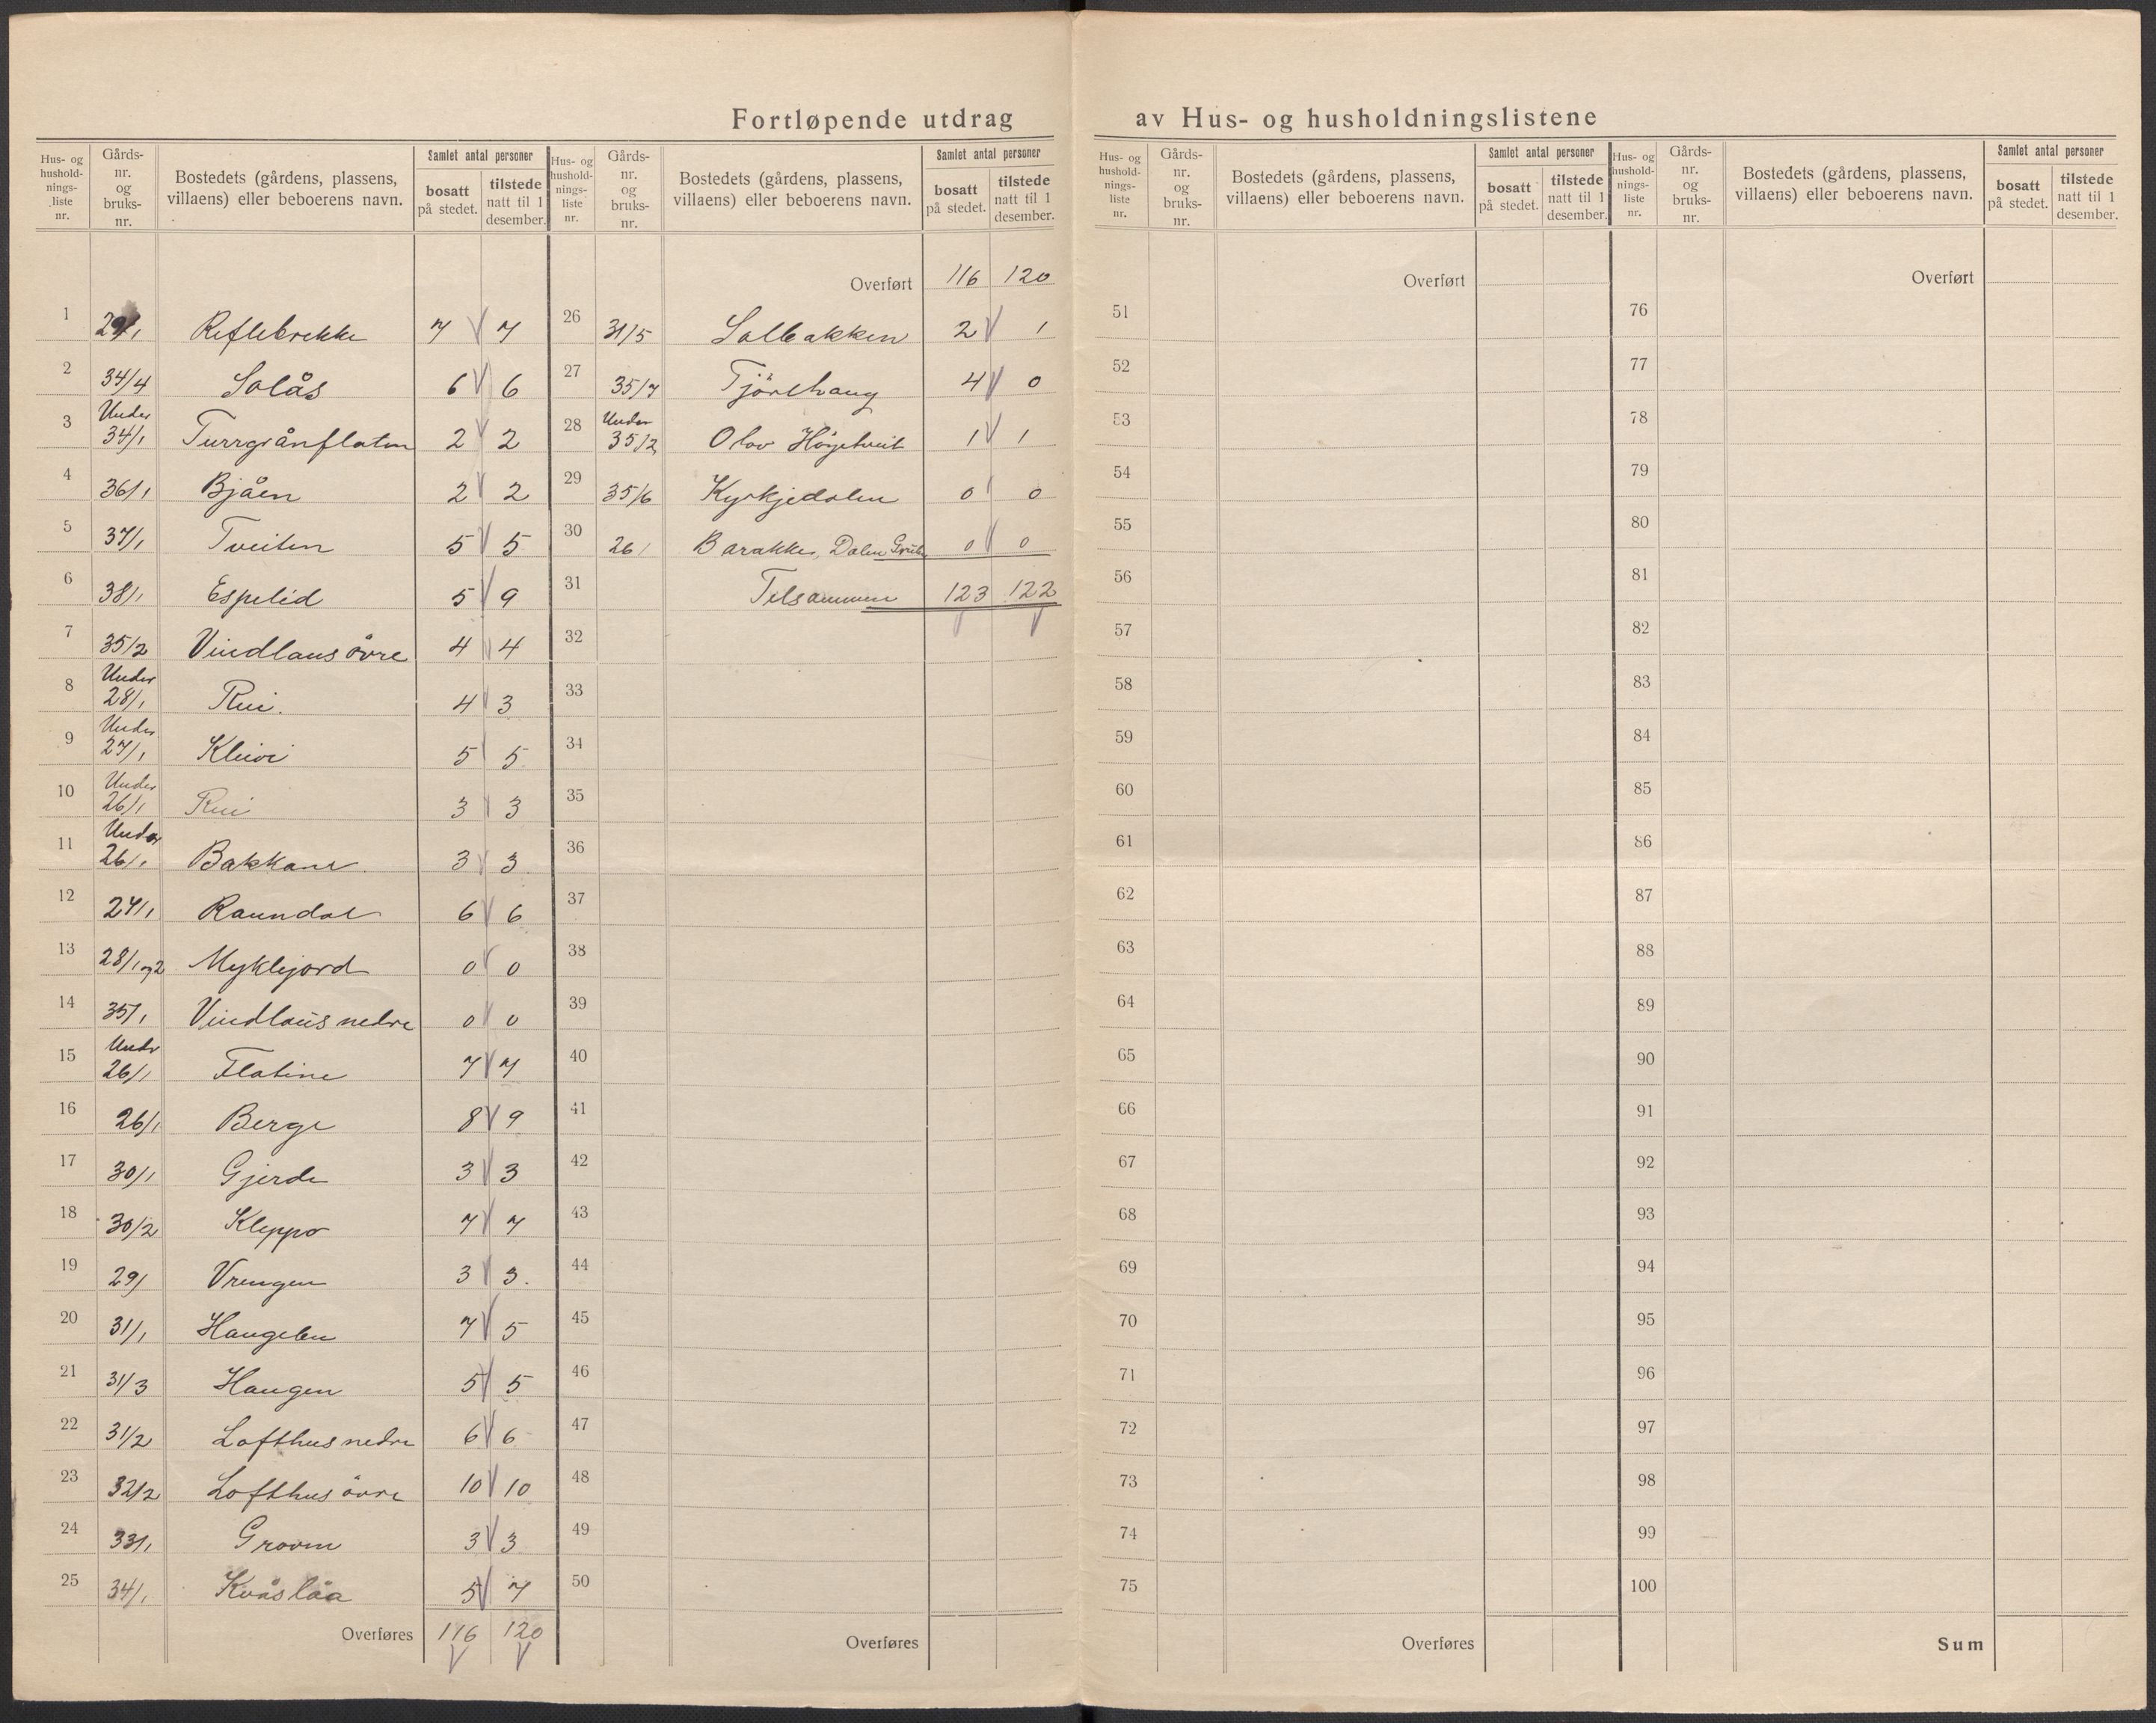 Fortløpende utdrag av Hus- og husholdningslistene
Hus- og hushold- nings- liste nr. Gårds- nr. og bruks- nr. Bostedets (gårdens, plassens, villaens) eller beboerens navn. Samlet antal personer bosatt på stedet. tilstede natt til 1 desember.
1 29/1 Reflebrekke 7 7
2 34/4 Solås 6 6
3 Under 34/1 Turrgrånflaten 2 2
4 36/1 Bjåen 2 2
5 37/1 Tveiten 5 5
6 38/1 Espelid 5 9
7 35/2 Vindlaus øvre 4 4
8 Under 28/1 Rui. 4 3
9 Under 27/1 Kleivi 5 5
10 Under 26/1 Rui 3 3
11 Under 26/1 Bakkane 3 3
12 27/1 Raundal 6 6
13 28/1 og 2 Myklejord 0 0
14 35/1 Vindlaus nedre 0 0
15 Undr 26/1 Flatine 7 7
16 26/1 Berge 8 9
17 30/1 Gjerde 3 3
18 30/2 Kleppo 7 7
19 29/ Vrengen 3 3.
20 31/1 Haugelen 7 5
21 31/3 Haugen 5 5
22 31/2 Lofthus nedre 6 6
23 32/2 Lofthus øvre 10 10
24 33/1 Groven 3 3
25 34/1 Kvåslåa 5 7
Overføres 116 120
Hus- og hushold- nings- liste nr. Gårds- nr. og bruks- nr. Bostedets (gårdens, plassens, villaens) eller beboerens navn. Samlet antal personer bosatt på stedet. tilstede natt til 1 desember.
Overført 116 120
26 31/5 Solbakken 2 1
27 35/7 Tjørlhaug 4 0
28 Under 35/2 Olav Høgetveit 1 1
29 35/6 Kyrkjedalen 0 0
30 26/ Barakke, Dalen 0 0
31 Tilsammen 123 122
32
33
34
35
36
37
38
39
40
41
42
43
44
45
46
47
48
49
50
Overføres
Hus- og hushold- nings- liste nr. Gårds- nr. og bruks- nr. Bostedets (gårdens, plassens, villaens) eller beboerens navn. Samlet antal personer bosatt på stedet. tilstede natt til 1 desember.
Overført
51
52
53
54
55
56
57
58
59
60
61
62
63
64
65
66
67
68
69
70
71
72
73
74
75
Overføres
Hus- og hushold- nings- liste nr. Gårds- nr. og bruks- nr. Bostedets (gårdens, plassens, villaens) eller beboerens navn. Samlet antal personer bosatt på stedet. tilstede natt til 1 desember.
Overført
76
77
78
79
80
81
82
83
84
85
86
87
88
89
90
91
92
93
94
95
96
97
98
99
100
Sum